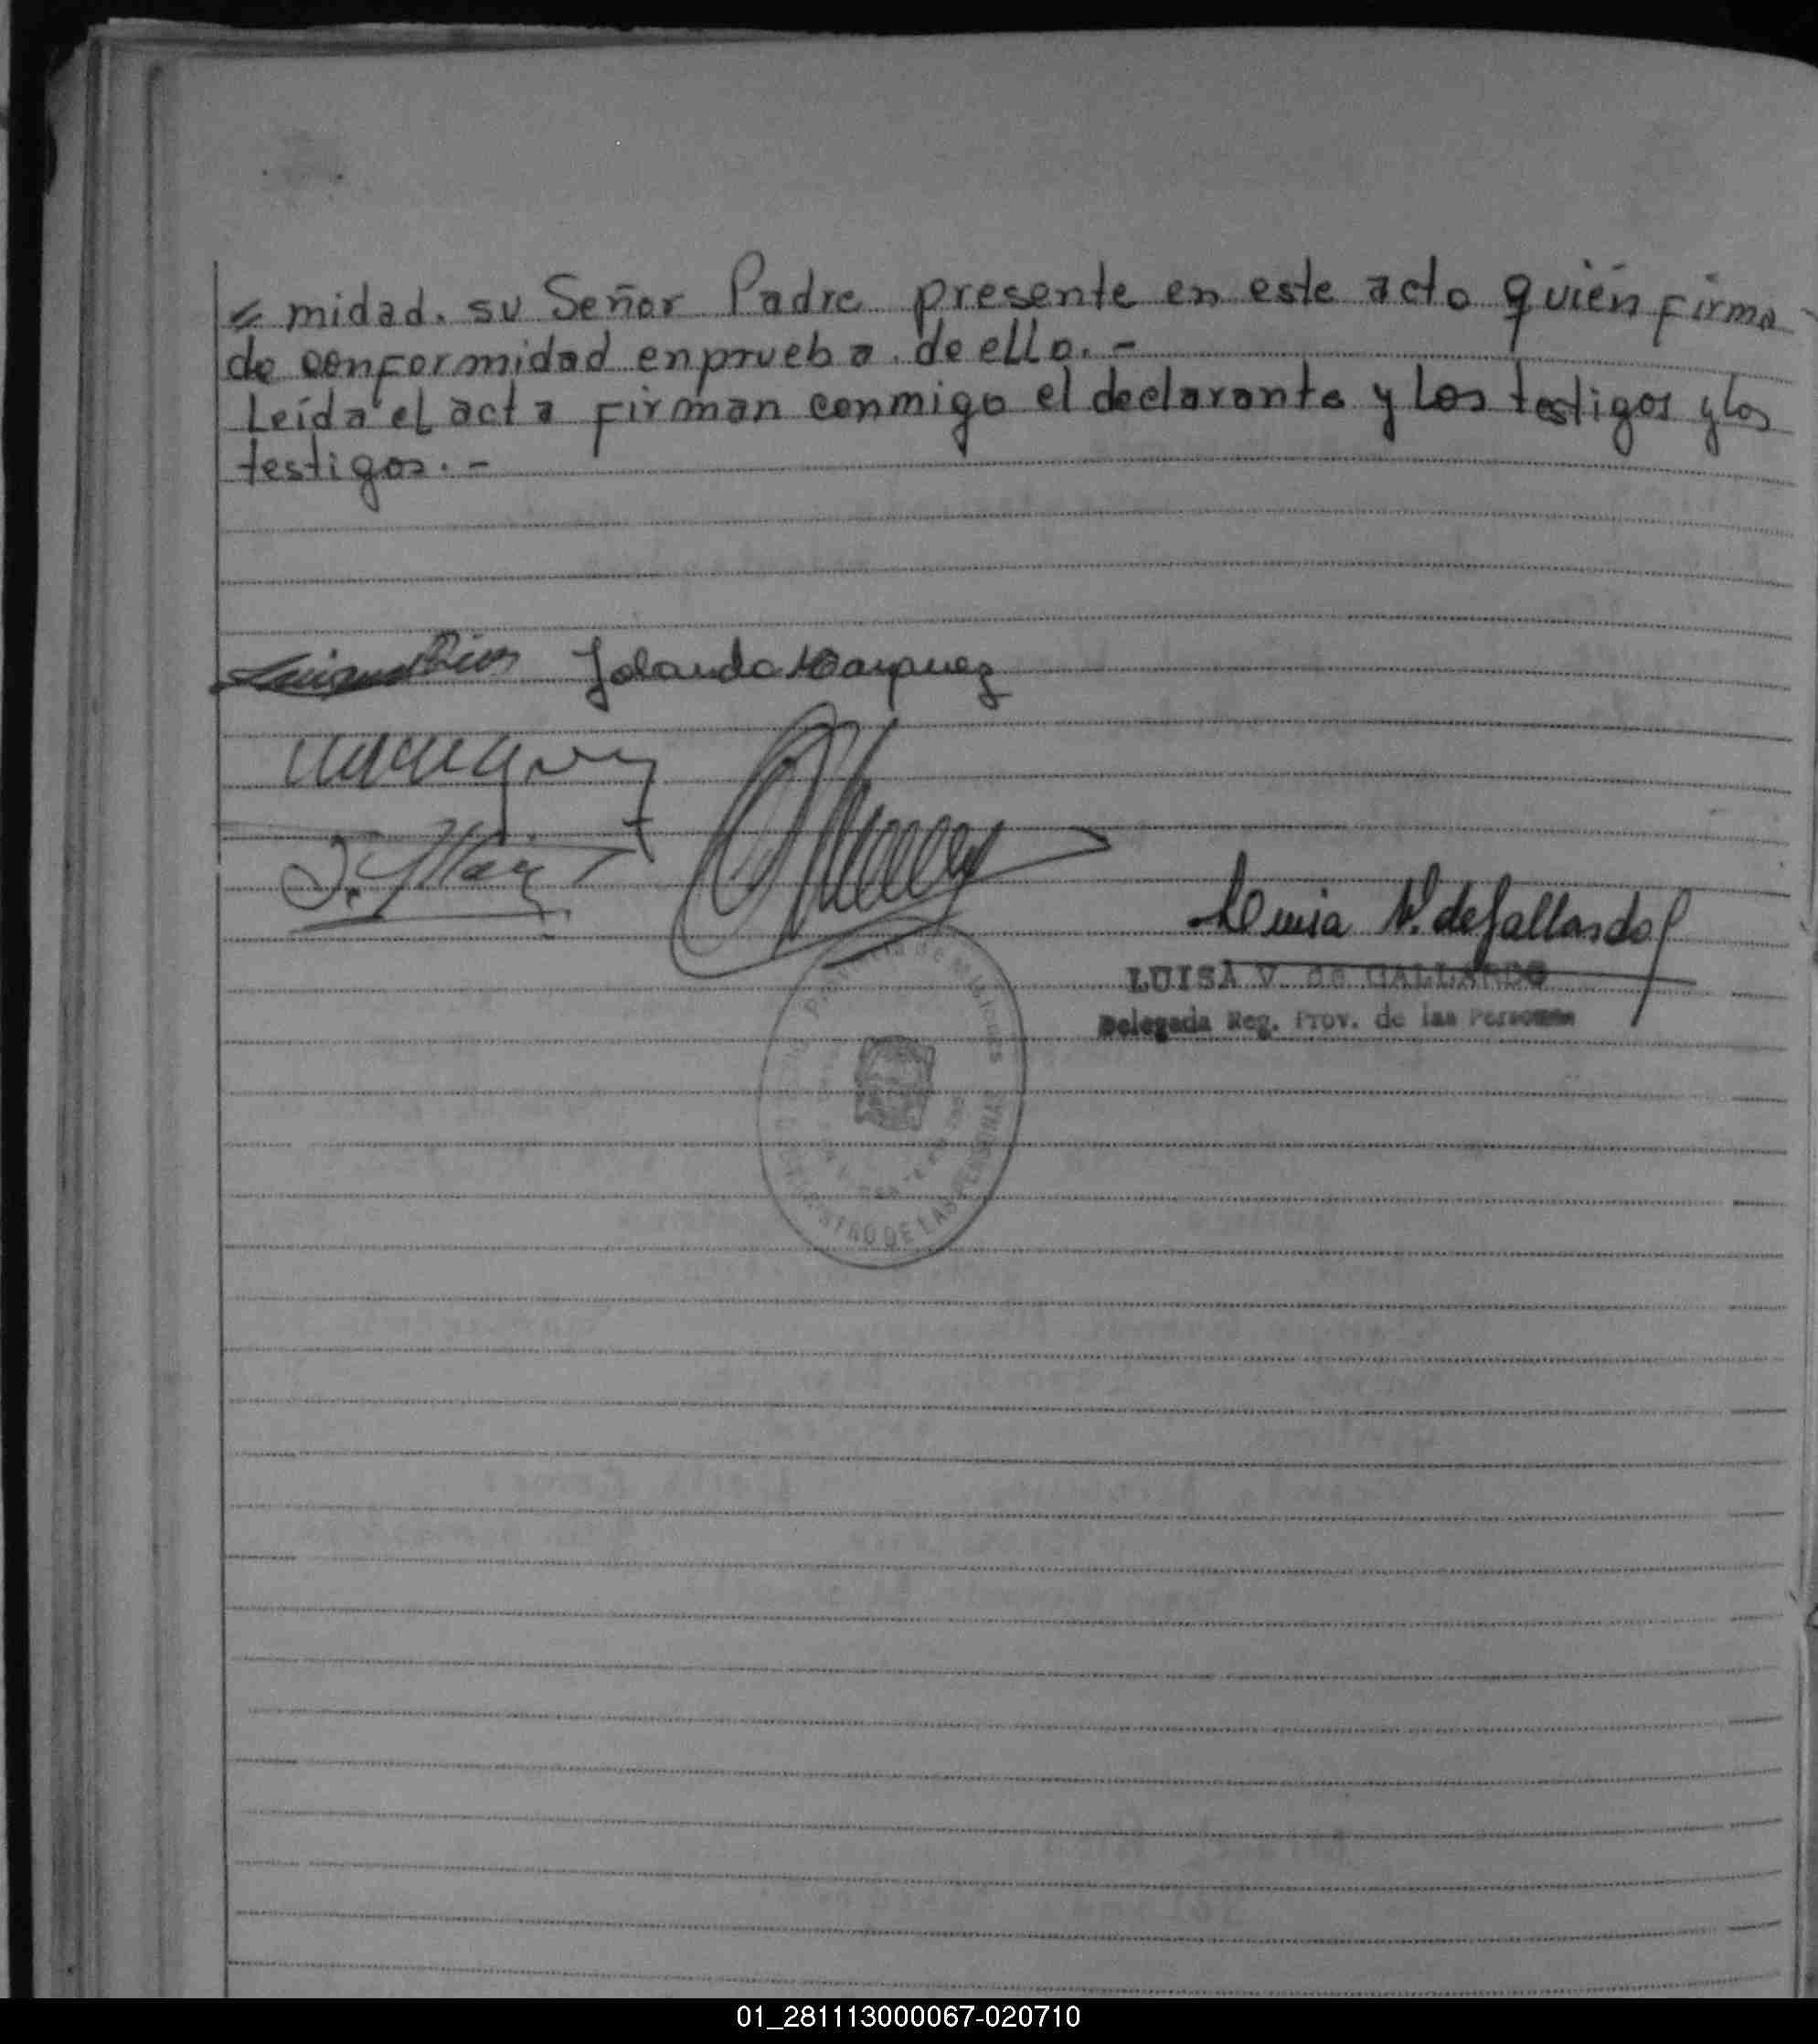 midad. su Señor Padre presente en este acto quién firma
de conformidad en prueba de ello. -
Leída el acta firman conmigo el declarante y los testigos y los
testigos. -
Jolanda Marquez
Luisa V. de Gallardo
LUISA V. de GALLARDO
Delegada Reg. Prov. de las Personas
Provincia de Misiones
REGISTRO DE LAS PERSONAS
01_281113000067-020710